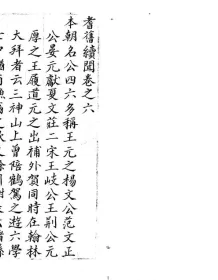 耆舊續聞卷之六
本朝名公四六多稱王元之楊文公范文正
公晏元獻夏文莊二宋王岐公王荆公元
厚之王履道元之出補外賀同時在翰林
大拜者云三神山上曾陪鶴駕之遊六學